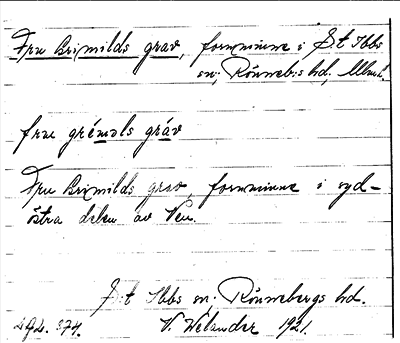 Fru Grimilds grav, fornminne i S:t Ibbs
sn, Rönnebgs hd, Mlmh.
frue grémols gráv
Fru Grimilds grav, fornminne i syd-
östra delen av Ven.
S:t Ibbs sn. Rönnebergs hd.
574. V. Welander 1921.